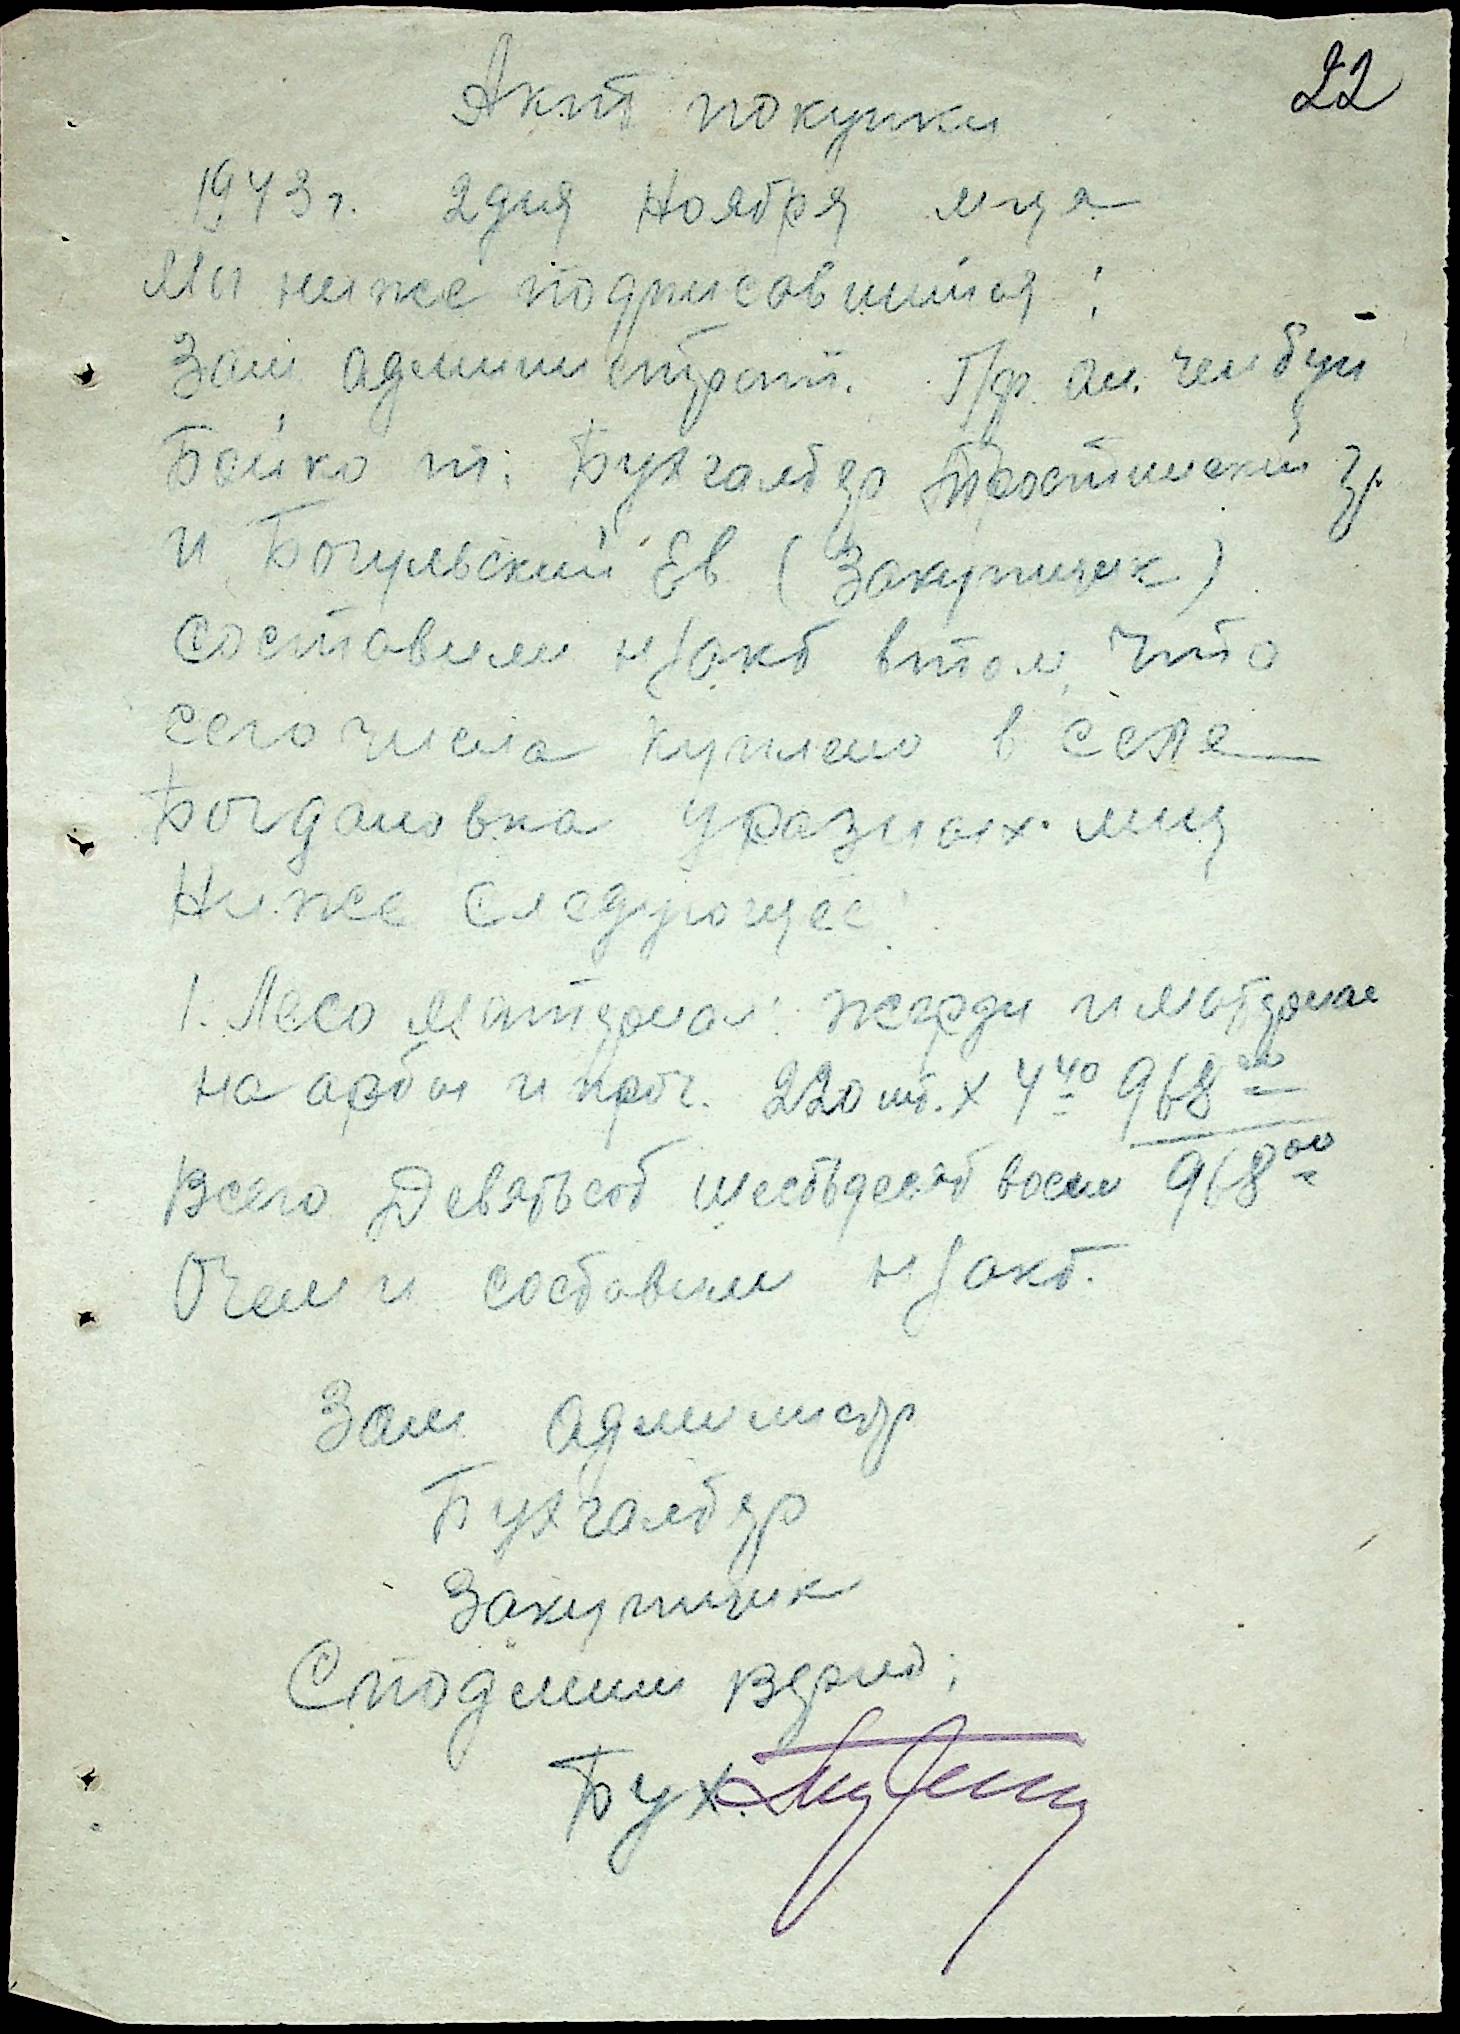 22
Акт покупки
1943 г. 2 дня Ноября м-ця
Мы ниже подписавшийся:
Зам администрат. Г/ф. ам.
Бойко т. Бухгалтер Тростинский Зр.
и Богульский Ев (Закупщик)
составили н/акт в том, что
сего числа куплено в селе
Богдановка у разных лиц
Ниже следующее:
1. Лесо материал: жерди и материал
на арбы и проч. 220 шт. х 4 40 968 00
968 00
Всего Девятьсот шестьдесят восем
О чем и составили н/акт.
Зам администр
Бухгалтер
Закупщик
С подлиним верно:
Бух.